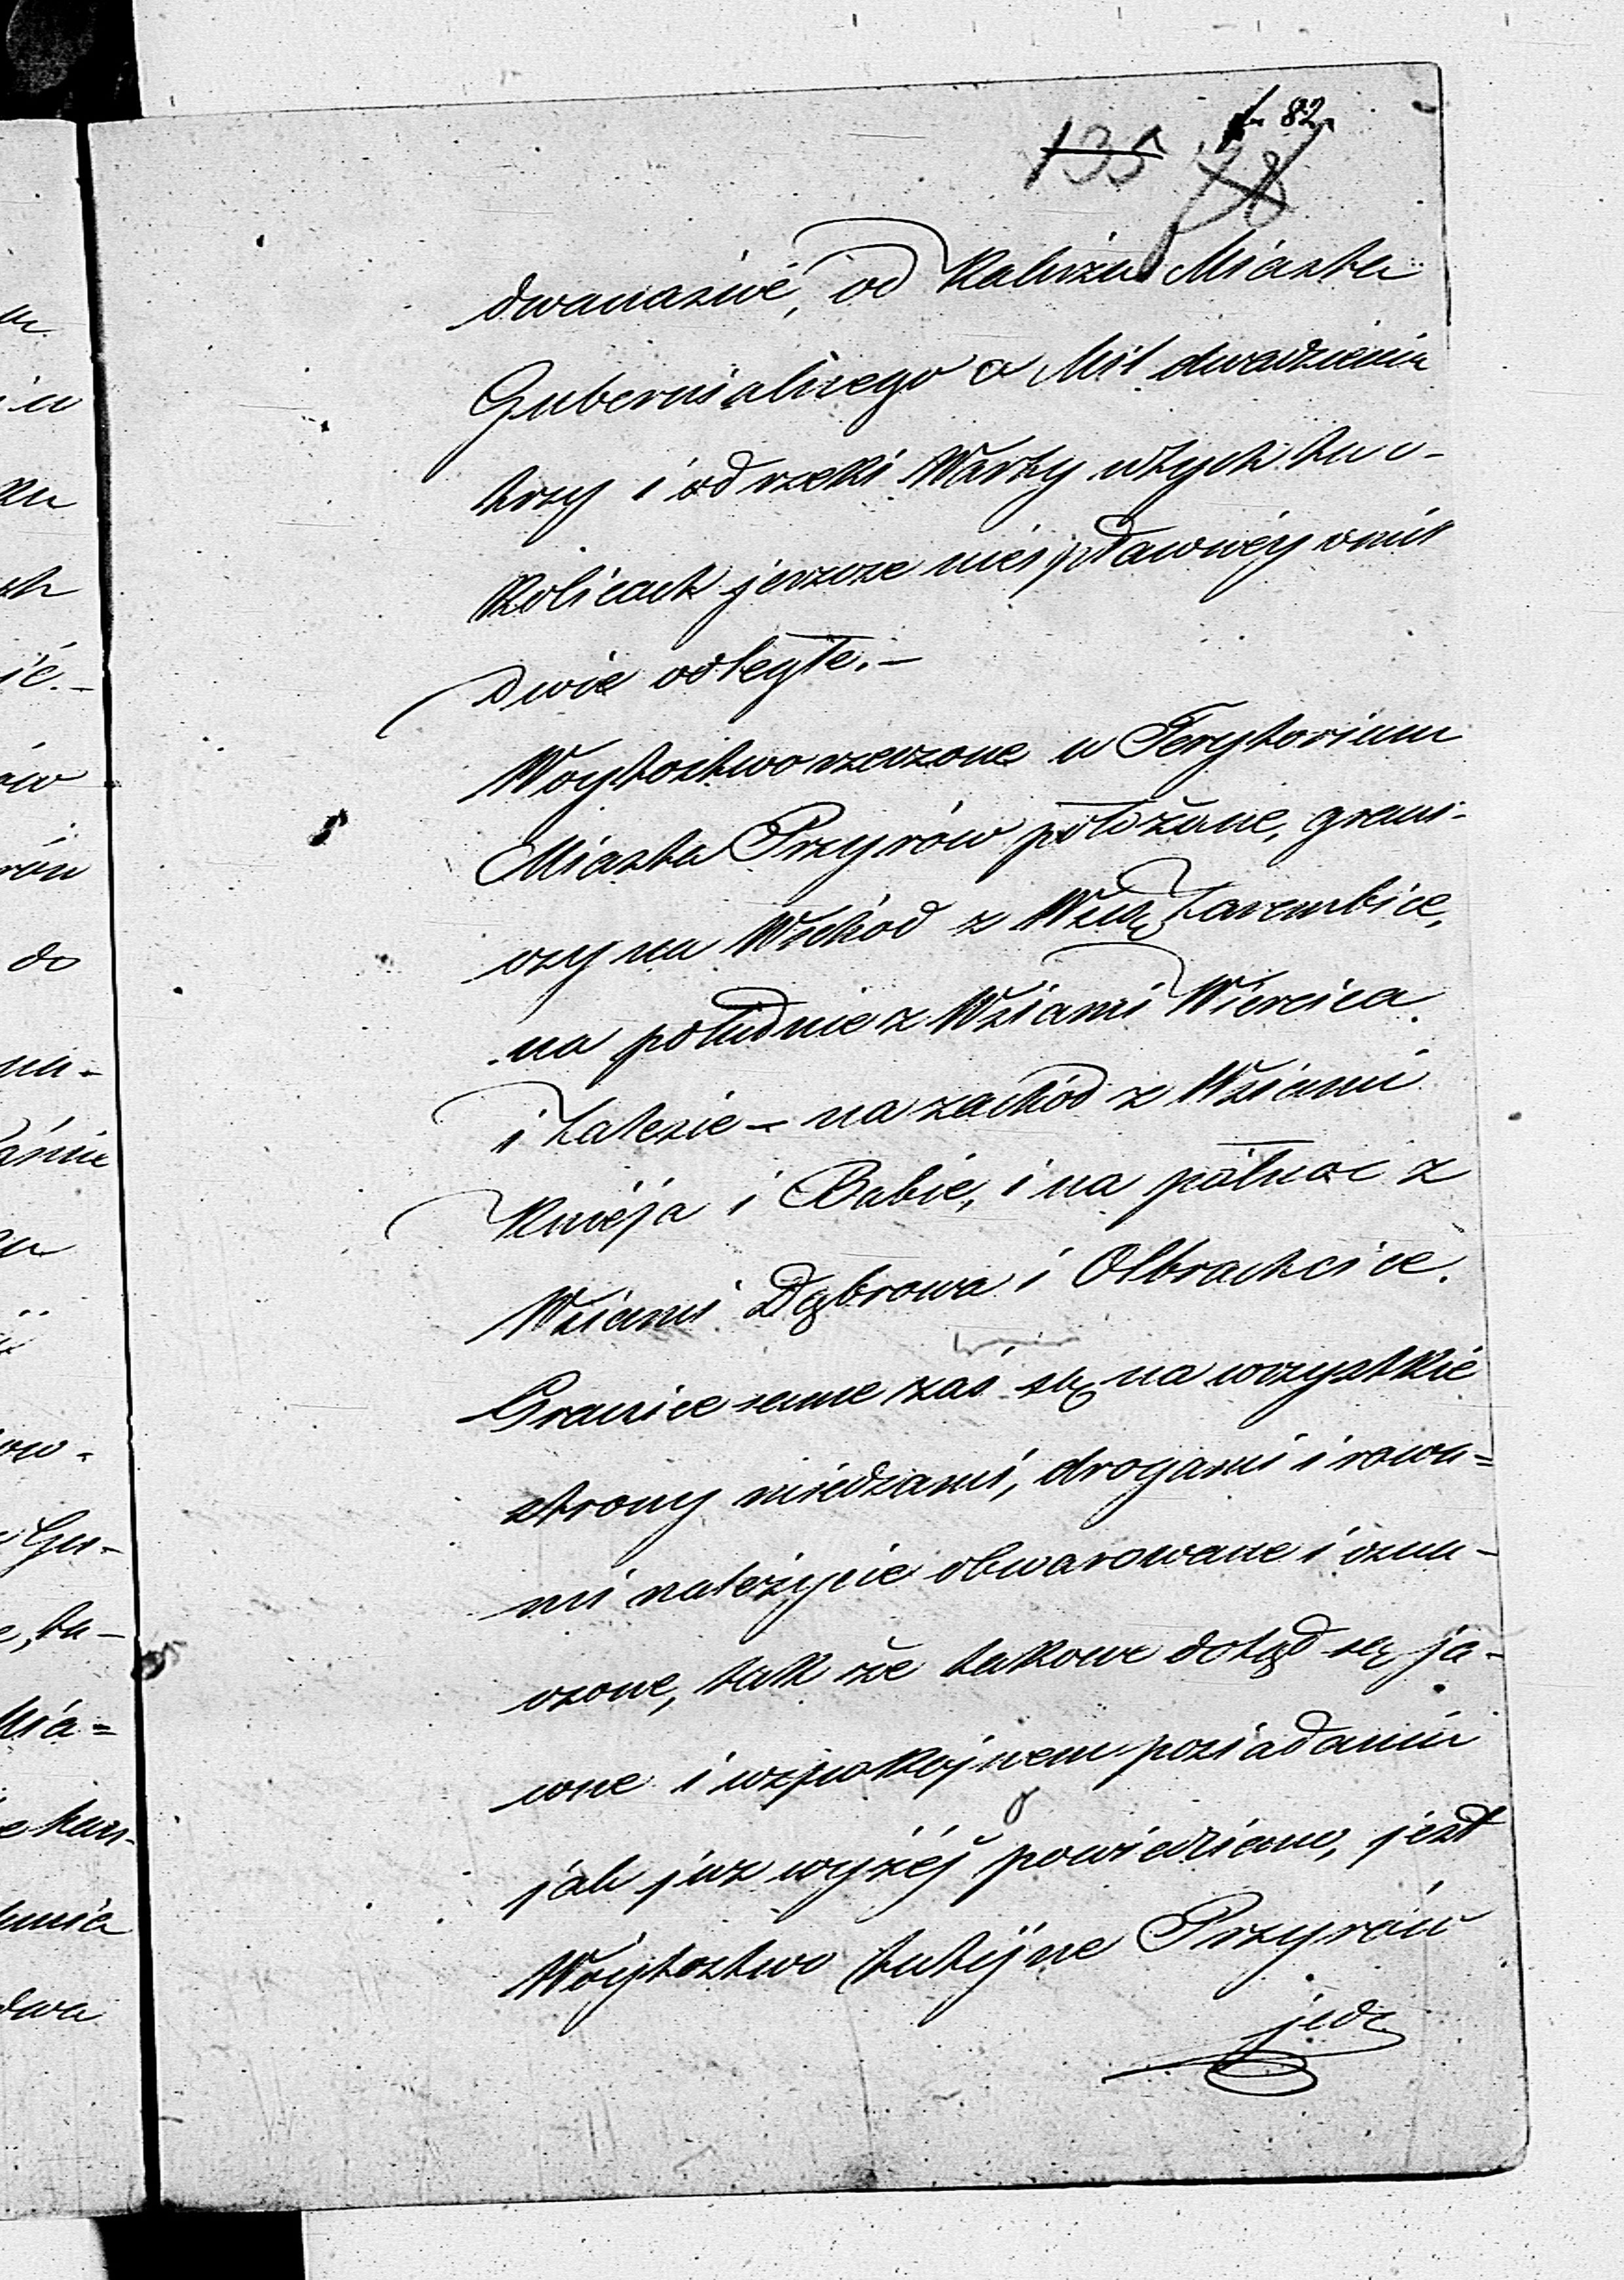 135 78
82
dwanaście, od Kalisza Miasta
Gubernialnego o Mil dwadzieścia
trzy i od rzeki Warty wtych tu o-
kolicach jeszcze niespławnéy o mil
dwie odległe.—
Woytostwo rzeczone w Terytorium
Miasta Przyrów położone, grani-
czy na Wschód z Wsią Zarembice,
na południe z Wsiami Wiercica
i Zalesie — na zachód z Wsiami
Knieja i Babie, i na północ z
Wsiami Dąbrowa i Olbrachcice.
Granice same zaś są na wszystkie
strony miedzami, drogami i rowa=
mi należycie obwarowane i ozna-
czone, tak że takowe dotąd są ja-
wne i wspokojnem posiadaniu
jak już wyżéj powiedziano, jest
Woytostwo tutéjsze Przyrów
jede